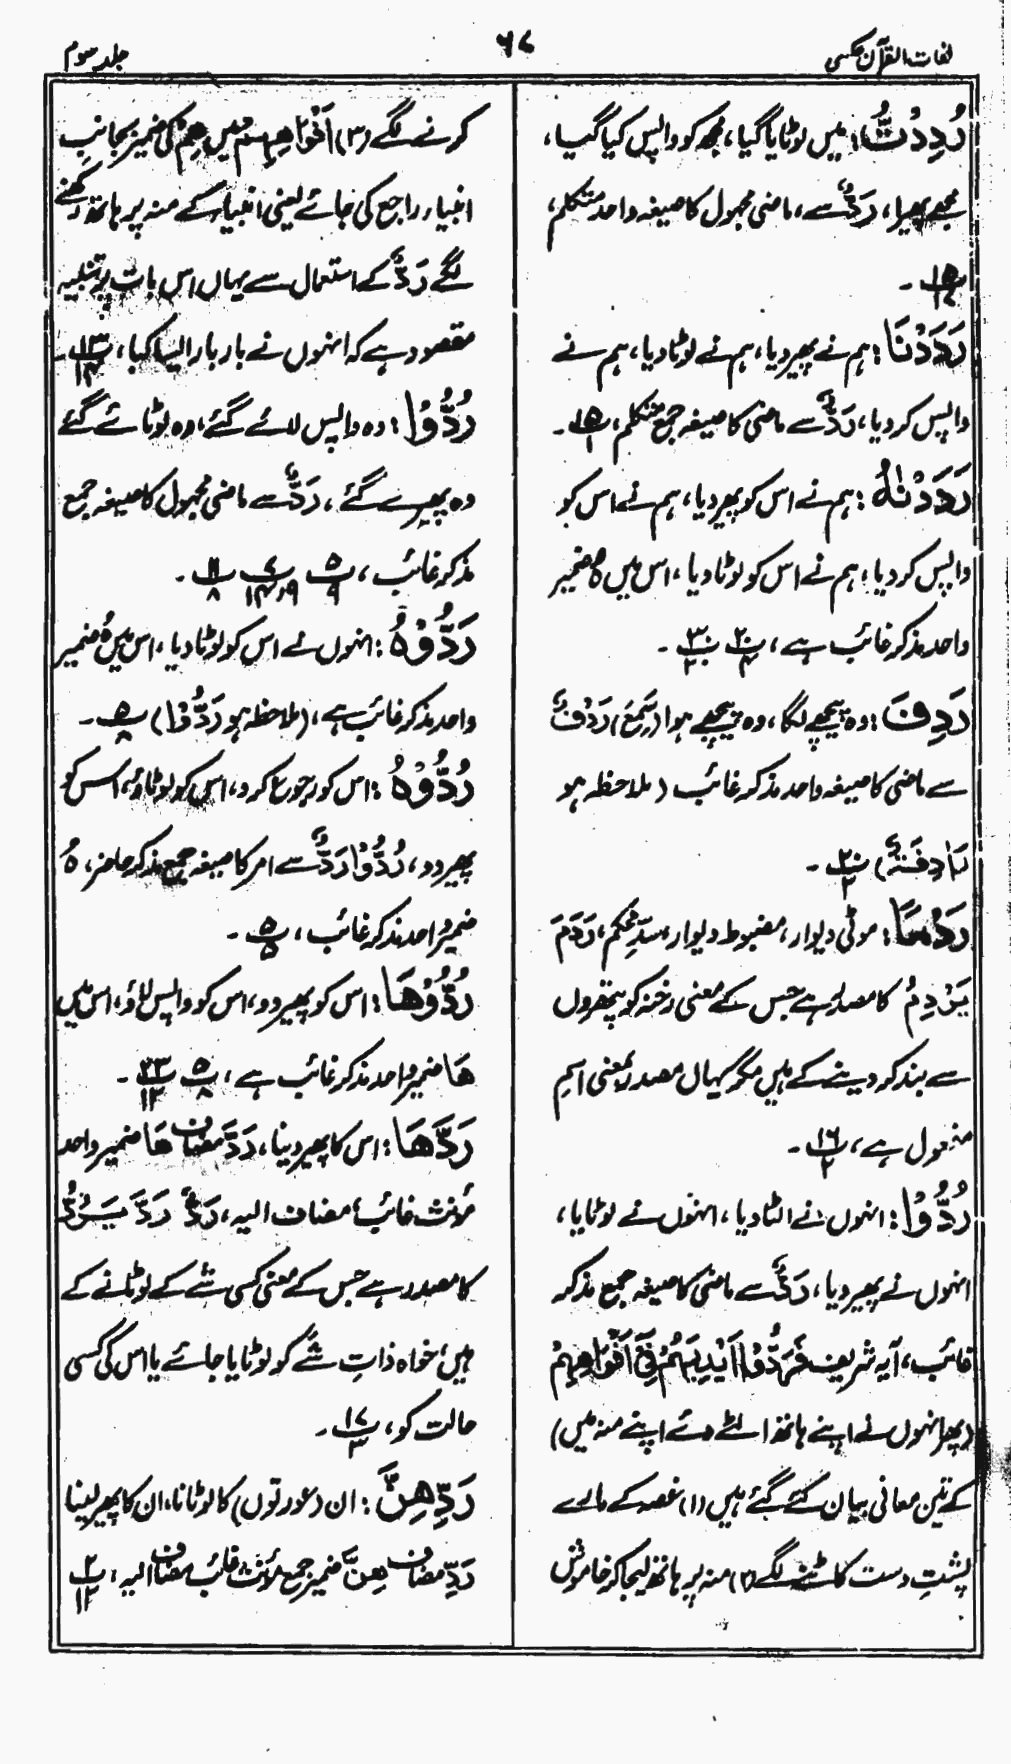 لغات القرآن عکسی
۶۷
جلد سوم
رُدِدْتُّ: میں لوٹایا گیا، مجھ کو واپس کیا گیا،
مجھے پھیرا، رَدٌّ سے، ماضی مجہول کا صیغہ واحد متکلم،
پ۱۵/۱۷ ۔
رَدَدْنَا: ہم نے پھیر دیا، ہم نے لوٹا دیا، ہم نے
واپس کر دیا، رَدٌّ سے ماضی کا صیغہ جمع متکلم، پ۱۵/۱ ۔
رَدَدْنٰہُ: ہم نے اس کو پھیر دیا، ہم نے اس کو
واپس کر دیا، ہم نے اس کو لوٹا دیا، اس میں ہٗ ضمیر
واحد مذکر غائب ہے، پ۲۰/۴ پ۳۰/۲۰ ۔
رَدِفَ: وہ پیچھے لگا، وہ پیچھے ہوا (سَمِعَ) رَدْفٌ
سے ماضی کا صیغہ واحد مذکر غائب (ملاحظہ ہو
رَادِفَۃٌ) پ۲۰/۲ ۔
رَدْمًا: موٹی دیوار، مضبوط دیوار، سدِّ محکم، رَدَمَ
یَرْدِمُ کا مصدر ہے جس کے معنی رخنہ کو پتھروں
سے بند کر دینے کے ہیں مگر یہاں مصدر بمعنی اسم
مفعول ہے، پ۱۶/۲ ۔
رُدُّوْا: انہوں نے الٹا دیا، انہوں نے لوٹایا،
انہوں نے پھیر دیا، رَدٌّ سے ماضی کا صیغہ جمع مذکر
غائب، آیہ شریفہ فَرَدُّوْا اَیْدِیَہُمْ فِیْ اَفْوَاھِہِمْ
(پھر انہوں نے اپنے ہاتھ الٹے دئے اپنے منہ میں)
کے تین معانی بیان کئے گئے ہیں (۱) غصہ کے مارے
پشتِ دست کاٹنے لگے (۲) منہ پر ہاتھ لیجا کر خاموش
کرنے لگے (۳) اَفْوَاھِہِمْ میں ھِمْ کی ضمیر بجانبِ
انبیاء راجع کی جائے یعنی انبیاء کے منہ پر ہاتھ رکھنے
لگے رَدٌّ کے استعمال سے یہاں اس بات پر تنبیہ
مقصود ہے کہ انہوں نے بار بار ایسا کیا، پ۱۳/۱۴ ۔
رُدُّوْا: وہ واپس لائے گئے، وہ لوٹائے گئے
وہ پھیرے گئے، رَدٌّ سے ماضی مجہول کا صیغہ جمع
مذکر غائب، پ۵/۹ پ۷/۹،۱۴ پ۱۱/۸ ۔
رَدُّوْہُ: انہوں نے اس کو لوٹا دیا، اس میں ہٗ ضمیر
واحد مذکر غائب ہے، (ملاحظہ ہو رَدُّوْا) پ۵/۸ ۔
رُدُّوْہُ: اس کو رجوع کرو، اس کو لوٹاؤ، اس کو
پھیر دو، رُدُّوْا رَدٌّ سے امر کا صیغہ جمع مذکر حاضر، ہُ
ضمیر واحد مذکر غائب، پ۵/۵ ۔
رُدُّوْھَا: اس کو پھیر دو، اس کو واپس لاؤ، اس میں
ھَا ضمیر واحد مذکر غائب ہے، پ۵/۸ پ۲۳/۱۲ ۔
رَدَّھَا: اس کا پھیر دینا، رَدَّ مضاف ھَا ضمیر واحد
مؤنث غائب مضاف الیہ، رَدٌّ رَدَّ یَرُدُّ
کا مصدر ہے جس کے معنی کسی شے کے لوٹانے کے
ہیں، خواہ ذاتِ شے کو لوٹایا جائے یا اس کی کسی
حالت کو، پ۱۷/۳ ۔
رَدِّھِنَّ: ان (عورتوں) کا لوٹانا، ان کا پھیر لینا
رَدِّ مضاف ھِنَّ ضمیر جمع مؤنث غائب مضاف الیہ، پ۲/۱۲